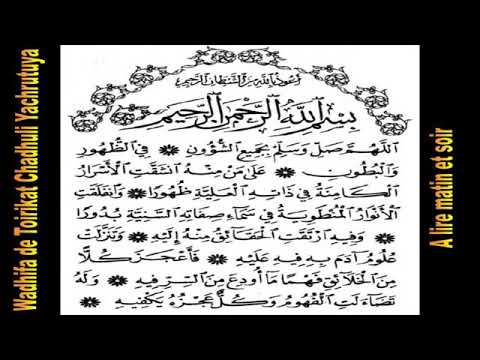 Wadhifa de Toirikat Chadhuli Yachrutuya
أَعُوذُ بِاللَّهِ مِنَ الشَّيْطَانِ الرَّجِيمِ
بِسْمِ اللَّهِ الرَّحْمَٰنِ الرَّحِيمِ
اَللَّهُمَّ صَلِّ وَسَلِّمْ بِجَمِيعِ الشُّؤُونِ * فِي الظُّهُورِ
وَالْبُطُونِ * عَلَى مَنْ مِنْهُ انْشَقَّتِ الْأَسْرَارُ
الْكَامِنَةُ فِي ذَاتِهِ الْعَلِيَّةِ ظُهُورًا * وَانْفَلَقَتِ
الْأَنْوَارُ الْمُنْطَوِيَةُ فِي سَمَاءِ صِفَاتِهِ السَّنِيَّةِ بُدُورًا
* وَفِيهِ ارْتَقَتِ الْحَقَائِقُ مِنْهُ إِلَيْهِ * وَتَنَزَّلَتْ
عُلُومُ آدَمَ بِهِ فِيهِ عَلَيْهِ * فَأَعْجَزَ كُلًّا
مِنَ الْخَلَائِقِ فَهْمُ مَا أُودِعَ مِنَ السِّرِّ فِيهِ * وَلَهُ
تَضَاءَلَتِ الْفُهُومُ وَكُلٌّ عَجْزُهُ يَكْفِيهِ *
A lire matin et soir